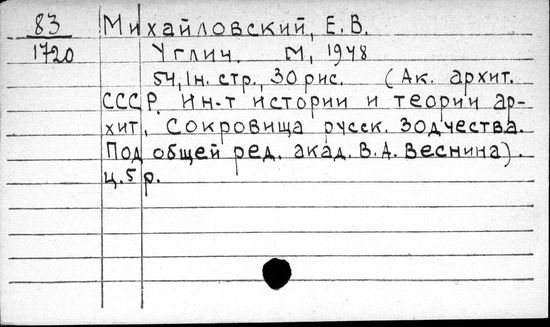 83 Михайловский, Е.В.
1720 Углич. М, 1948
54, 1н. стр., 30 рис. (Ак. архит.
СССР. Ин-т истории и теории ар-
хит. Сокровища русск. зодчества.
Под общей ред. акад. В.А. Веснина).
ц. 5 р.